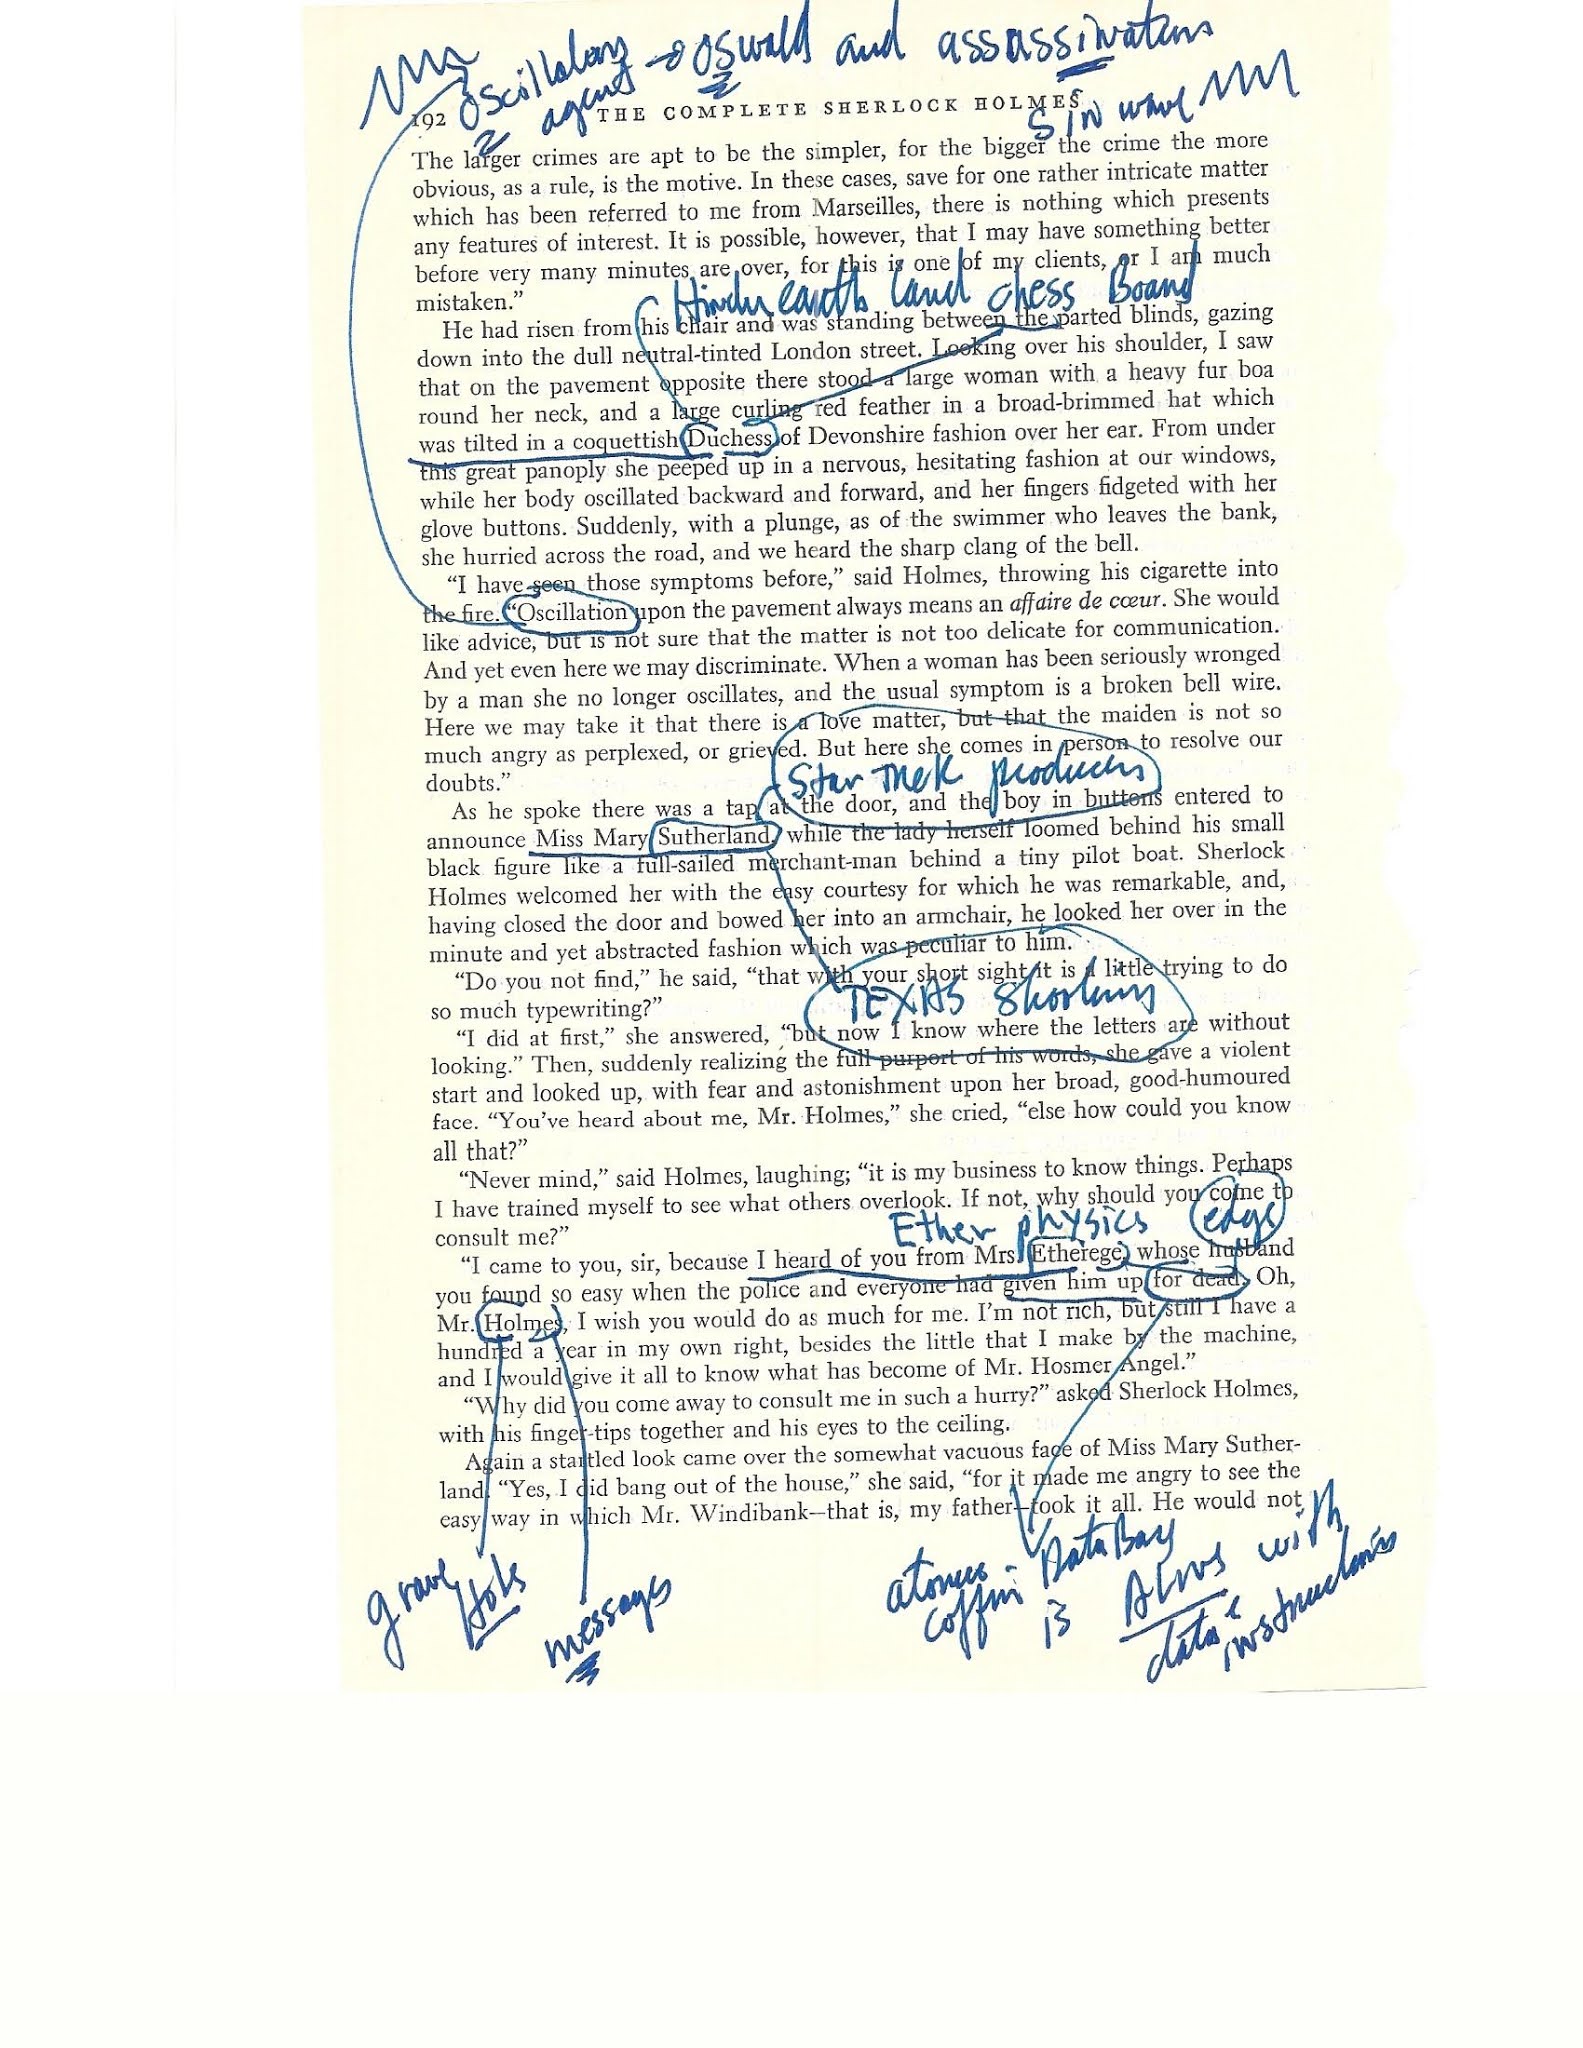 Oscillatory → Oswald and assassinations
agent
192 THE COMPLETE SHERLOCK HOLMES
SIN wave
The larger crimes are apt to be the simpler, for the bigger the crime the more
obvious, as a rule, is the motive. In these cases, save for one rather intricate matter
which has been referred to me from Marseilles, there is nothing which presents
any features of interest. It is possible, however, that I may have something better
before very many minutes are over, for this is one of my clients, or I am much
mistaken.”
Hindu earth land chess Board
He had risen from his chair and was standing between the parted blinds, gazing
down into the dull neutral-tinted London street. Looking over his shoulder, I saw
that on the pavement opposite there stood a large woman with a heavy fur boa
round her neck, and a large curling red feather in a broad-brimmed hat which
was tilted in a coquettish Duchess of Devonshire fashion over her ear. From under
this great panoply she peeped up in a nervous, hesitating fashion at our windows,
while her body oscillated backward and forward, and her fingers fidgeted with her
glove buttons. Suddenly, with a plunge, as of the swimmer who leaves the bank,
she hurried across the road, and we heard the sharp clang of the bell.
“I have seen those symptoms before,” said Holmes, throwing his cigarette into
the fire. “Oscillation upon the pavement always means an affaire de cœur. She would
like advice, but is not sure that the matter is not too delicate for communication.
And yet even here we may discriminate. When a woman has been seriously wronged
by a man she no longer oscillates, and the usual symptom is a broken bell wire.
Here we may take it that there is a love matter, but that the maiden is not so
much angry as perplexed, or grieved. But here she comes in person to resolve our
doubts.”
Star Trek producers
As he spoke there was a tap at the door, and the boy in buttons entered to
announce Miss Mary Sutherland, while the lady herself loomed behind his small
black figure like a full-sailed merchant-man behind a tiny pilot boat. Sherlock
Holmes welcomed her with the easy courtesy for which he was remarkable, and,
having closed the door and bowed her into an armchair, he looked her over in the
minute and yet abstracted fashion which was peculiar to him.
“Do you not find,” he said, “that with your short sight it is a little trying to do
so much typewriting?”
TEXAS
“I did at first,” she answered, “but now I know where the letters are without
looking.” Then, suddenly realizing the full purport of his words, she gave a violent
start and looked up, with fear and astonishment upon her broad, good-humoured
face. “You’ve heard about me, Mr. Holmes,” she cried, “else how could you know
all that?”
“Never mind,” said Holmes, laughing; “it is my business to know things. Perhaps
I have trained myself to see what others overlook. If not, why should you come to
consult me?”
Ether physics edge
“I came to you, sir, because I heard of you from Mrs. Etherege, whose husband
you found so easy when the police and everyone had given him up for dead. Oh,
Mr. Holmes, I wish you would do as much for me. I’m not rich, but still I have a
hundred a year in my own right, besides the little that I make by the machine,
and I would give it all to know what has become of Mr. Hosmer Angel.”
“Why did you come away to consult me in such a hurry?” asked Sherlock Holmes,
with his finger-tips together and his eyes to the ceiling.
Again a startled look came over the somewhat vacuous face of Miss Mary Suther-
land. “Yes, I did bang out of the house,” she said, “for it made me angry to see the
easy way in which Mr. Windibank—that is, my father—took it all. He would not
grave
Hole
messages
coffin
is
with
data &
instructions